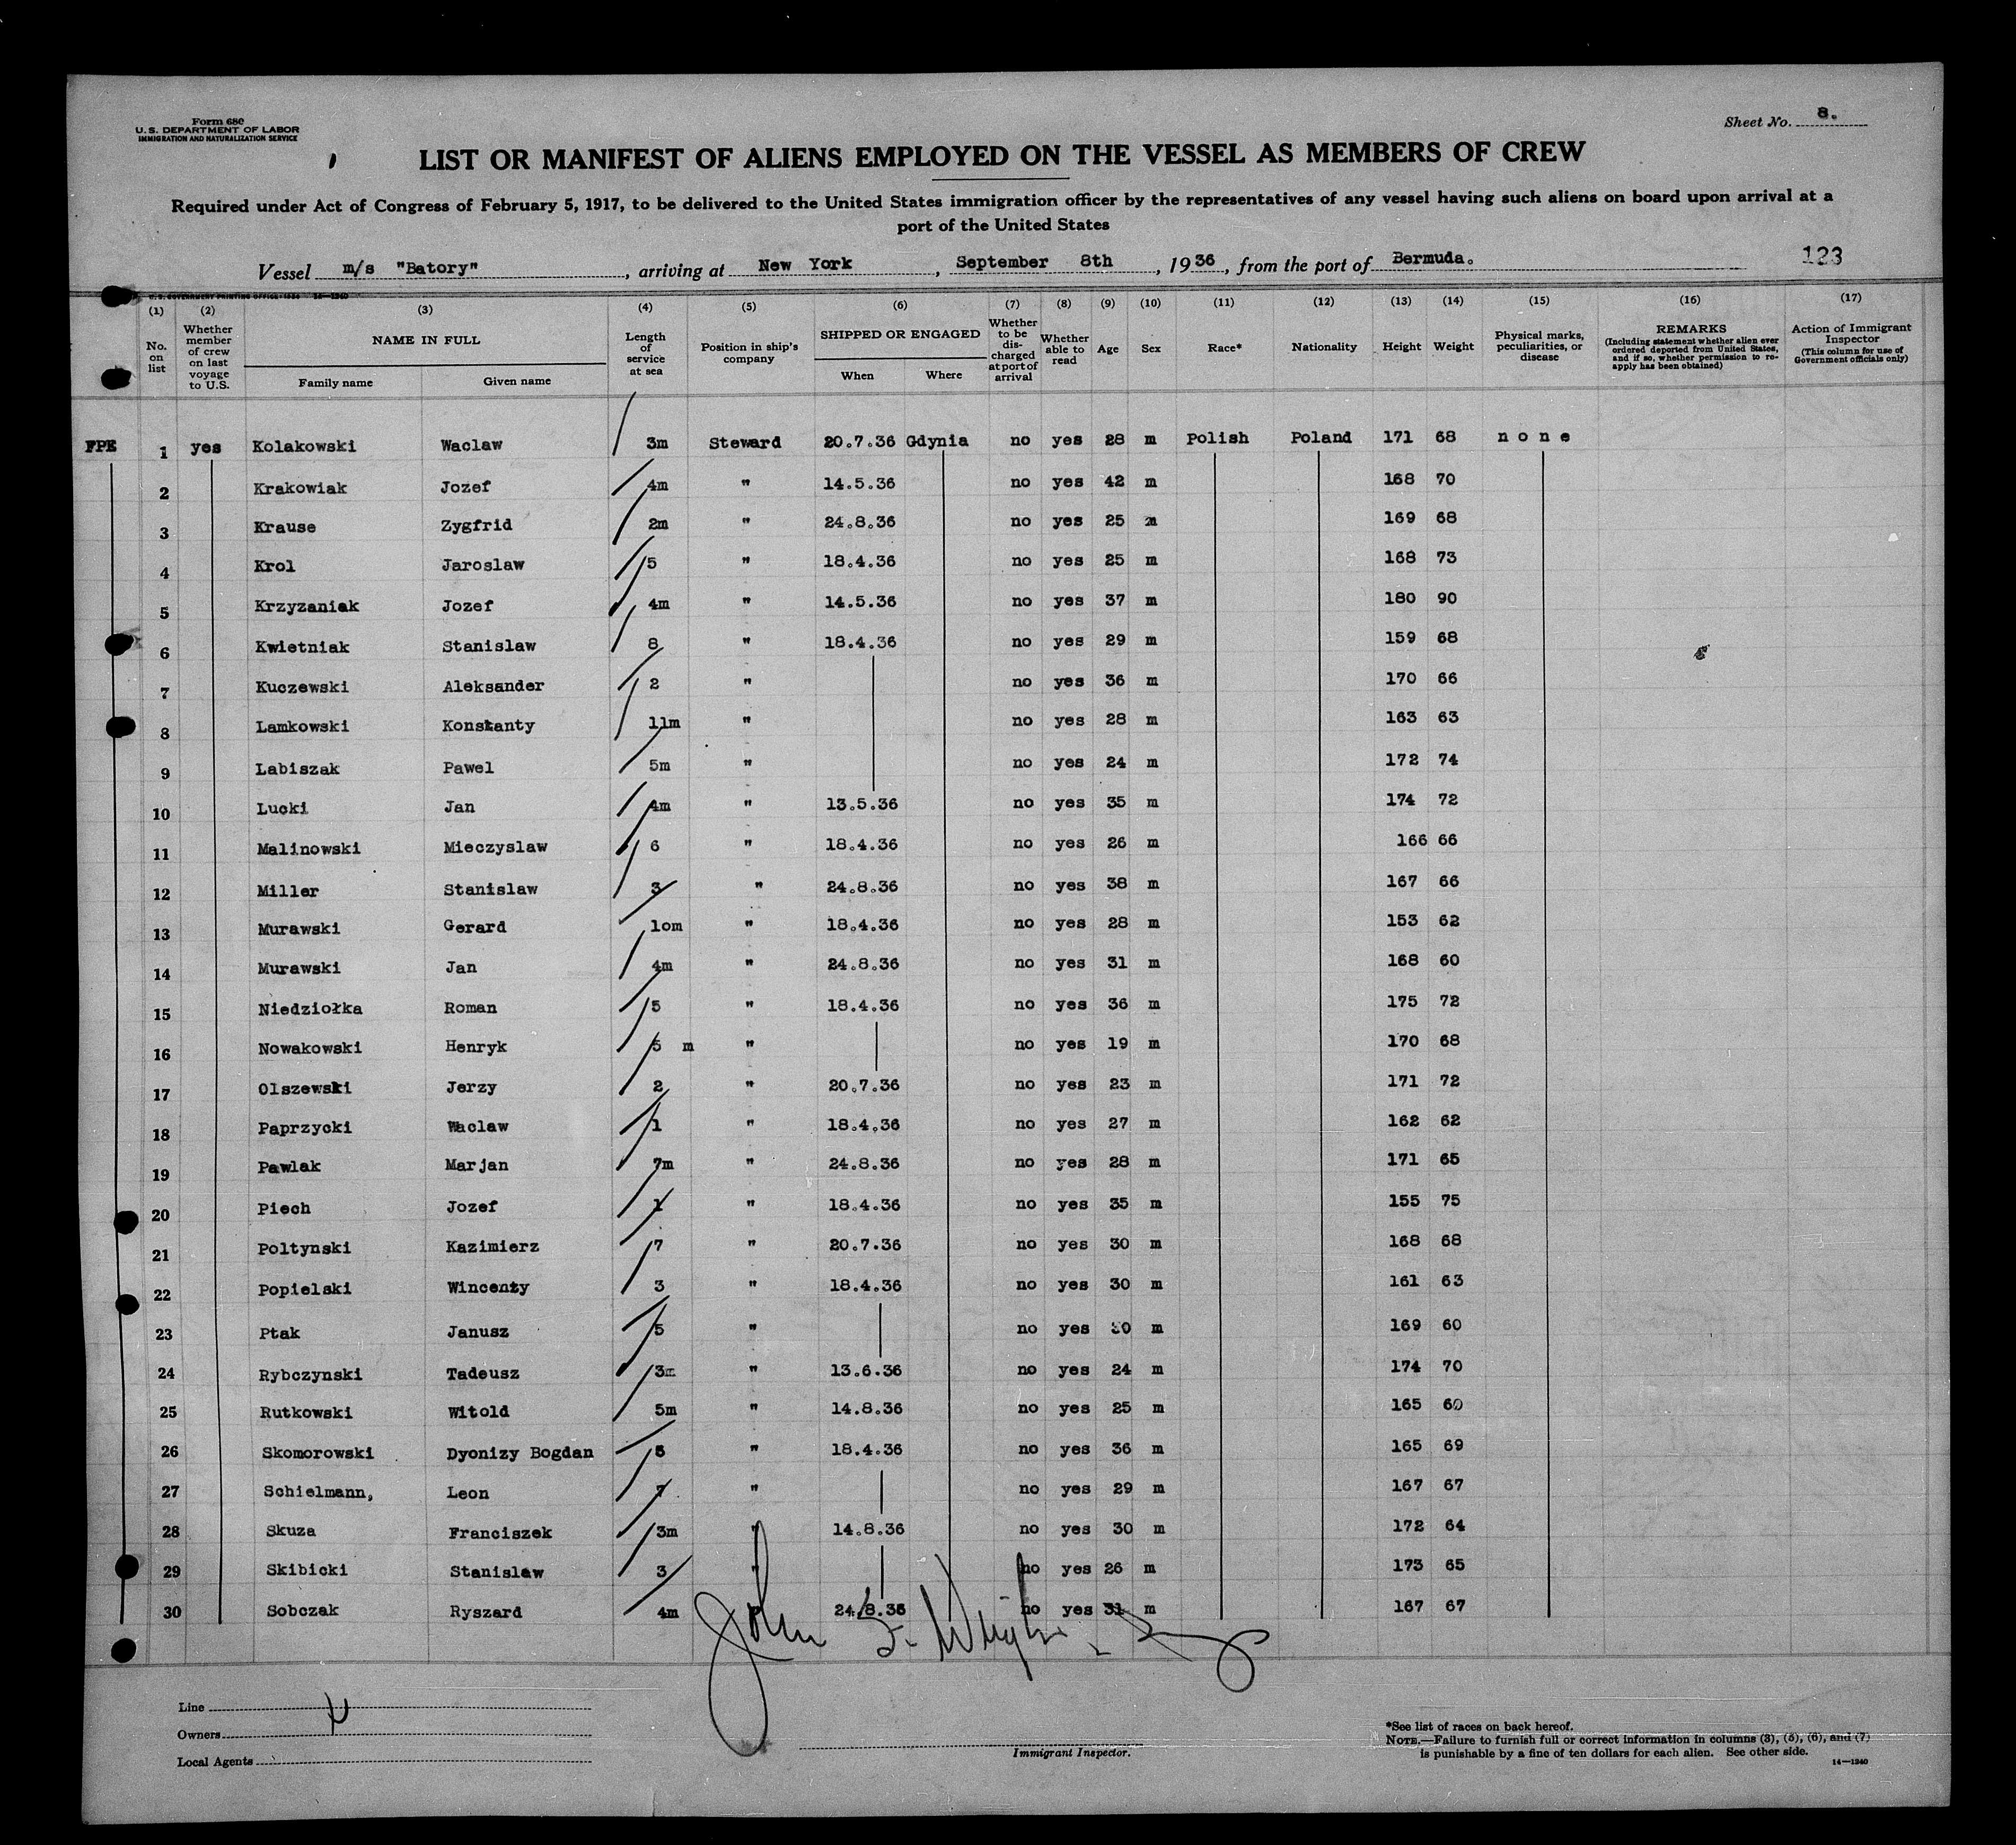 Form 680
U. S. DEPARTMENT OF LABOR
IMMIGRATION AND NATURALIZATION SERVICE
Sheet No. 8.
LIST OR MANIFEST OF ALIENS EMPLOYED ON THE VESSEL AS MEMBERS OF CREW
Required under Act of Congress of February 5, 1917, to be delivered to the United States immigration officer by the representatives of any vessel having such aliens on board upon arrival at a
port of the United States
Vessel m/s "Batory", arriving at New York, September 8th, 1936, from the port of Bermuda.
123
(1) No. on list
(2) Whether member of crew on last voyage to U.S.
(3) NAME IN FULL Family name Given name
(4) Length of service at sea
(5) Position in ship's company
(6) SHIPPED OR ENGAGED When Where
(7) Whether to be discharged at port of arrival
(8) Whether able to read
(9) Age
(10) Sex
(11) Race*
(12) Nationality
(13) Height
(14) Weight
(15) Physical marks, peculiarities, or disease
(16) REMARKS (Including statement whether alien ever ordered deported from United States, and if so, whether permission to reapply has been obtained)
(17) Action of Immigrant Inspector (This column for use of Government officials only)
FPE 1 yes Kolakowski Waclaw 3m Steward 20.7.36 Gdynia no yes 28 m Polish Poland 171 68 none
2 Krakowiak Jozef 4m " 14.5.36 no yes 42 m 168 70
3 Krause Zygfrid 2m " 24.8.36 no yes 25 m 169 68
4 Krol Jaroslaw 5 " 18.4.36 no yes 25 m 168 73
5 Krzyzaniak Jozef 4m " 14.5.36 no yes 37 m 180 90
6 Kwietniak Stanislaw 8 " 18.4.36 no yes 29 m 159 68
7 Kuczewski Aleksander 2 " no yes 36 m 170 66
8 Lamkowski Konstanty 11m " no yes 28 m 163 63
9 Labiszak Pawel 5m " no yes 24 m 172 74
10 Lucki Jan 4m " 13.5.36 no yes 35 m 174 72
11 Malinowski Mieczyslaw 6 " 18.4.36 no yes 26 m 166 66
12 Miller Stanislaw 3 " 24.8.36 no yes 38 m 167 66
13 Murawski Gerard 10m " 18.4.36 no yes 28 m 153 62
14 Murawski Jan 4m " 24.8.36 no yes 31 m 168 60
15 Niedziołka Roman 5 " 18.4.36 no yes 36 m 175 72
16 Nowakowski Henryk 5 m " no yes 19 m 170 68
17 Olszewski Jerzy 2 " 20.7.36 no yes 23 m 171 72
18 Paprzycki Waclaw 1 " 18.4.36 no yes 27 m 162 62
19 Pawlak Marjan 7m " 24.8.36 no yes 28 m 171 65
20 Piech Jozef 1 " 18.4.36 no yes 35 m 155 75
21 Poltynski Kazimierz 7 " 20.7.36 no yes 30 m 168 68
22 Popielski Wincenty 3 " 18.4.36 no yes 30 m 161 63
23 Ptak Janusz 5 " no yes 30 m 169 60
24 Rybczynski Tadeusz 3m " 13.6.36 no yes 24 m 174 70
25 Rutkowski Witold 5m " 14.8.36 no yes 25 m 165 60
26 Skomorowski Dyonizy Bogdan 6 " 18.4.36 no yes 36 m 165 69
27 Schielmann, Leon 7 " no yes 29 m 167 67
28 Skuza Franciszek 3m " 14.8.36 no yes 30 m 172 64
29 Skibicki Stanislaw 3 " no yes 26 m 173 65
30 Sobczak Ryszard 4m " 24.8.36 no yes 31 m 167 67
Line
Owners
Local Agents
Immigrant Inspector.
*See list of races on back hereof.
NOTE.—Failure to furnish full or correct information in columns (3), (5), (6), and (7)
is punishable by a fine of ten dollars for each alien. See other side.
14—1240